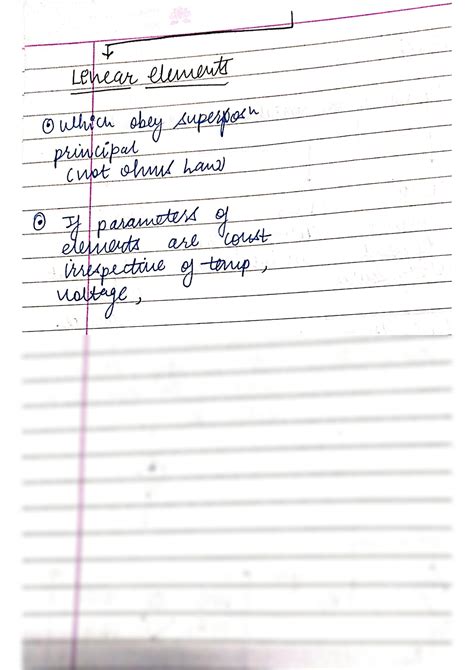 Lenear elements
⊙ which obey superposn
principal
(not ohms Law)
⊙ If parameters of
elements are const
irrespective of temp,
voltage,